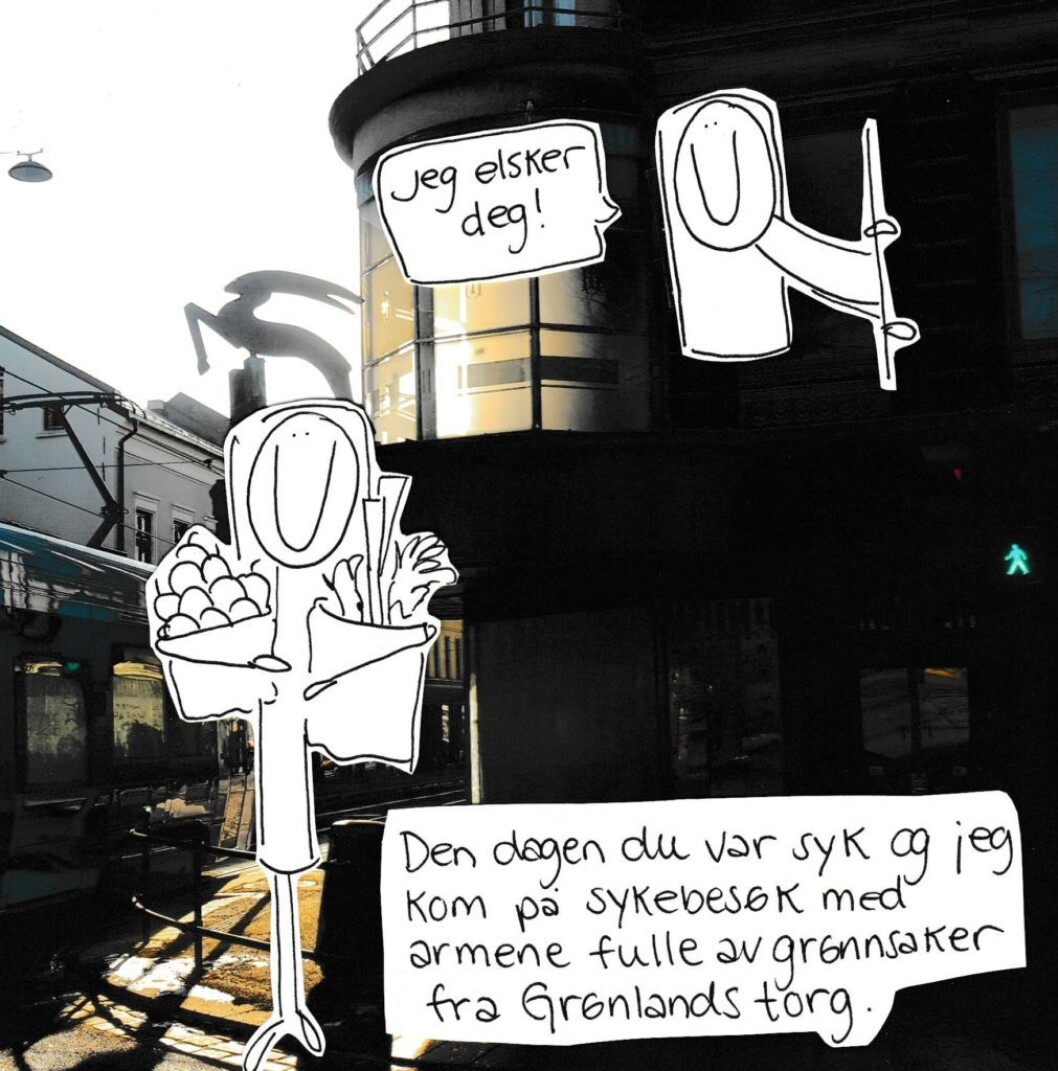 Jeg elsker
deg!
Den dagen du var syk og jeg
kom på sykebesøk med
armene fulle av grønnsaker
fra Grønlands torg.